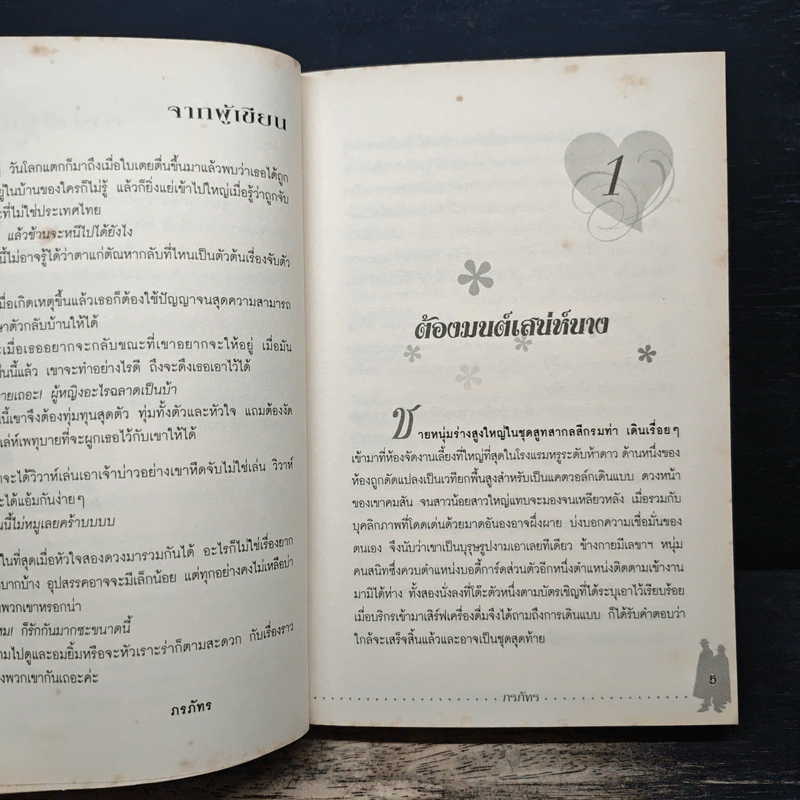 จากผู้เขียน
วันโลกแตกก็มาถึงเมื่อใบเตยตื่นขึ้นมาแล้วพบว่าเธอได้ถูก
ยู่ในบ้านของใครก็ไม่รู้ แล้วก็ยิ่งแย่เข้าไปใหญ่เมื่อรู้ว่าถูกจับ
ะที่ไม่ใช่ประเทศไทย
แล้วช้านจะหนีไปได้ยังไง
นี้ไม่อาจรู้ได้ว่าตาแก่ตัณหากลับที่ไหนเป็นตัวต้นเรื่องจับตัว
มื่อเกิดเหตุขึ้นแล้วเธอก็ต้องใช้ปัญญาจนสุดความสามารถ
ษาตัวกลับบ้านให้ได้
ะเมื่อเธออยากจะกลับขณะที่เขาอยากจะให้อยู่ เมื่อมัน
ป็นนี้แล้ว เขาจะทำอย่างไรดี ถึงจะดึงเธอเอาไว้ได้
ายเถอะ! ผู้หญิงอะไรฉลาดเป็นบ้า
นี้เขาจึงต้องทุ่มทุนสุดตัว ทุ่มทั้งตัวและหัวใจ แถมต้องงัด
ล่ห์เพทุบายที่จะผูกเธอไว้กับเขาให้ได้
าจะได้วิวาห์เล่นเอาเจ้าบ่าวอย่างเขาหืดจับไม่ใช่เล่น วิวาห์
ะได้แอ้มกันง่ายๆ
นนี้ไม่หมูเลยคร้าบบบบ
ในที่สุดเมื่อหัวใจสองดวงมารวมกันได้ อะไรก็ไม่ใช่เรื่องยาก
บากบ้าง อุปสรรคอาจจะมีเล็กน้อย แต่ทุกอย่างคงไม่เหลือบ่า
งพวกเขาหรอกน่า
หม! ก็รักกันมากซะขนาดนี้
ามไปดูและอมยิ้มหรือจะหัวเราะร่าก็ตามสะดวก กับเรื่องราว
งพวกเขากันเถอะค่ะ
ภรภัทร
1
ต้องมนต์เสน่ห์นาง
ชายหนุ่มร่างสูงใหญ่ในชุดสูทสากลสีกรมท่า เดินเรื่อยๆ
เข้ามาที่ห้องจัดงานเลี้ยงที่ใหญ่ที่สุดในโรงแรมหรูระดับห้าดาว ด้านหนึ่งของ
ห้องถูกดัดแปลงเป็นเวทียกพื้นสูงสำหรับเป็นแคตวอล์กเดินแบบ ดวงหน้า
ของเขาคมสัน จนสาวน้อยสาวใหญ่แทบจะมองจนเหลียวหลัง เมื่อรวมกับ
บุคลิกภาพที่โดดเด่นด้วยมาดอันองอาจผึ่งผาย บ่งบอกความเชื่อมั่นของ
ตนเอง จึงนับว่าเขาเป็นบุรุษรูปงามเอาเลยทีเดียว ข้างกายมีเลขาฯ หนุ่ม
คนสนิทซึ่งควบตำแหน่งบอดี้การ์ดส่วนตัวอีกหนึ่งตำแหน่งติดตามเข้างาน
มามิได้ห่าง ทั้งสองนั่งลงที่โต๊ะตัวหนึ่งตามบัตรเชิญที่ได้ระบุเอาไว้เรียบร้อย
เมื่อบริกรเข้ามาเสิร์ฟเครื่องดื่มจึงได้ถามถึงการเดินแบบ ก็ได้รับคำตอบว่า
ใกล้จะเสร็จสิ้นแล้วและอาจเป็นชุดสุดท้าย
ภรภัทร
5